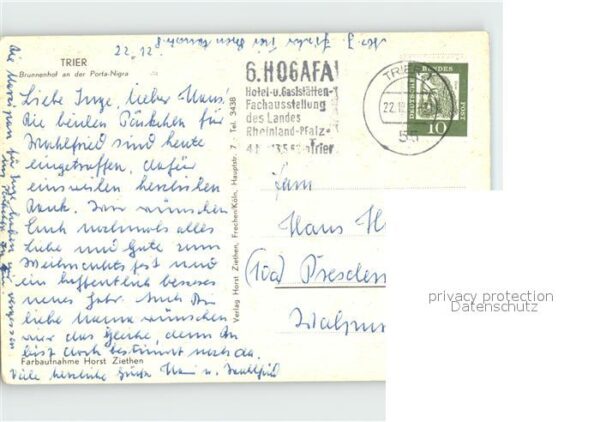 22.12.
TRIER
Brunnenhof an der Porta-Nigra
Liebe Inge, lieber Hans!
Die beiden Päckchen für
Wahlfried sind heute
eingetroffen, dafür
einstweilen herzlichen
Dank. Wir wünschen
Euch nochmals alles
Liebe und Gute zum
Weihnachtsfest und
ein hoffentlich besseres
neues Jahr. Auch Dir
liebe Mama wünschen
wir das Gleiche, denn Du
bist doch bestimmt noch da.
Farbaufnahme Horst Ziethen
Viele herzliche Grüße
Verlag Horst Ziethen, Frechen/Köln, Hauptstr. 7 - Tel. 3438
6. HOGAFA
Hotel-u. Gaststätten-
Fachausstellung
des Landes
Rheinland-Pfalz-
Trier
TRIER
22.12
55
DEUTSCHE BUNDESPOST
10
Fam
Hans
(10a) Dresden
privacy protection
Datenschutz